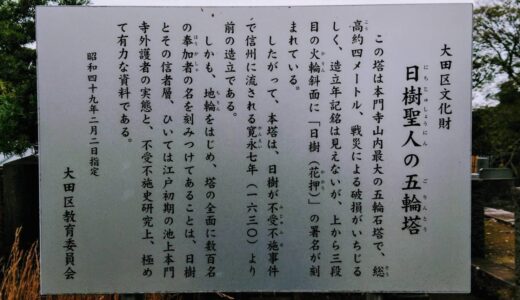 大田区文化財
日樹聖人の五輪塔
にちじゅしょうにん ごりんとう
この塔は本門寺山内最大の五輪石塔で、総
高約四メートル、戦災による破損がいちじる
しく、造立年記銘は見えないが、上から三段
目の火輪斜面に「日樹（花押）」の署名が刻
まれている。
したがって、本塔は、日樹が不受不施事件
で信州に流される寛永七年（一六三〇）より
前の造立である。
しかも、地輪をはじめ、塔の全面に数百名
の参加者の名を刻みつけてあることは、日樹
とその信者層、ひいては江戸初期の池上本門
寺外護者の実態と、不受不施史研究上、極め
て有力な資料である。
昭和四十九年二月二日指定
大田区教育委員会